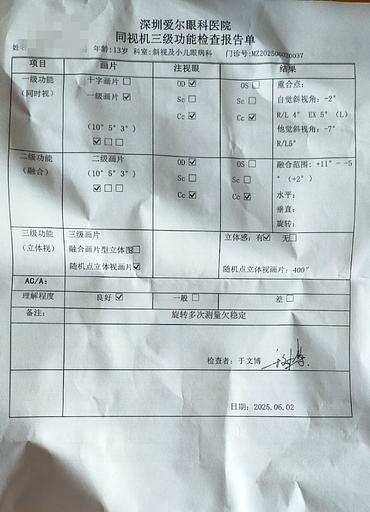 深圳爱尔眼科医院
同视机三级功能检查报告单
姓名 年龄:13岁 科室:斜视及小儿眼病科 门诊号:MZ202506020037
项目 画片 注视眼 结果
一级功能 十字画片□ OD☑ OS□ 重合点:
(同时视) 一级画片☑ Sc□ Sc□ 自觉斜视角: -2°
Cc☑ Cc☑ R/L 4° EX 5° (L)
(10° 5° 3°) 他觉斜视角: -7°
☑□□ R/L5°
二级功能 二级画片 OD☑ OS□ 融合范围: +11° - -5
(融合) (10° 5° 3°) Sc□ Sc□ ° (+2°)
☑□□ Cc☑ Cc☑ 水平:
垂直:
旋转:
三级功能 三级画片 立体感: 有☑ 无□
(立体视) 融合画片型立体图□
随机点立体视画片☑ 随机点立体视画片: 400″
AC/A:
理解程度 良好☑ 一般□ 差□
备注: 旋转多次测量欠稳定
检查者: 于文博
日期: 2025.06.02